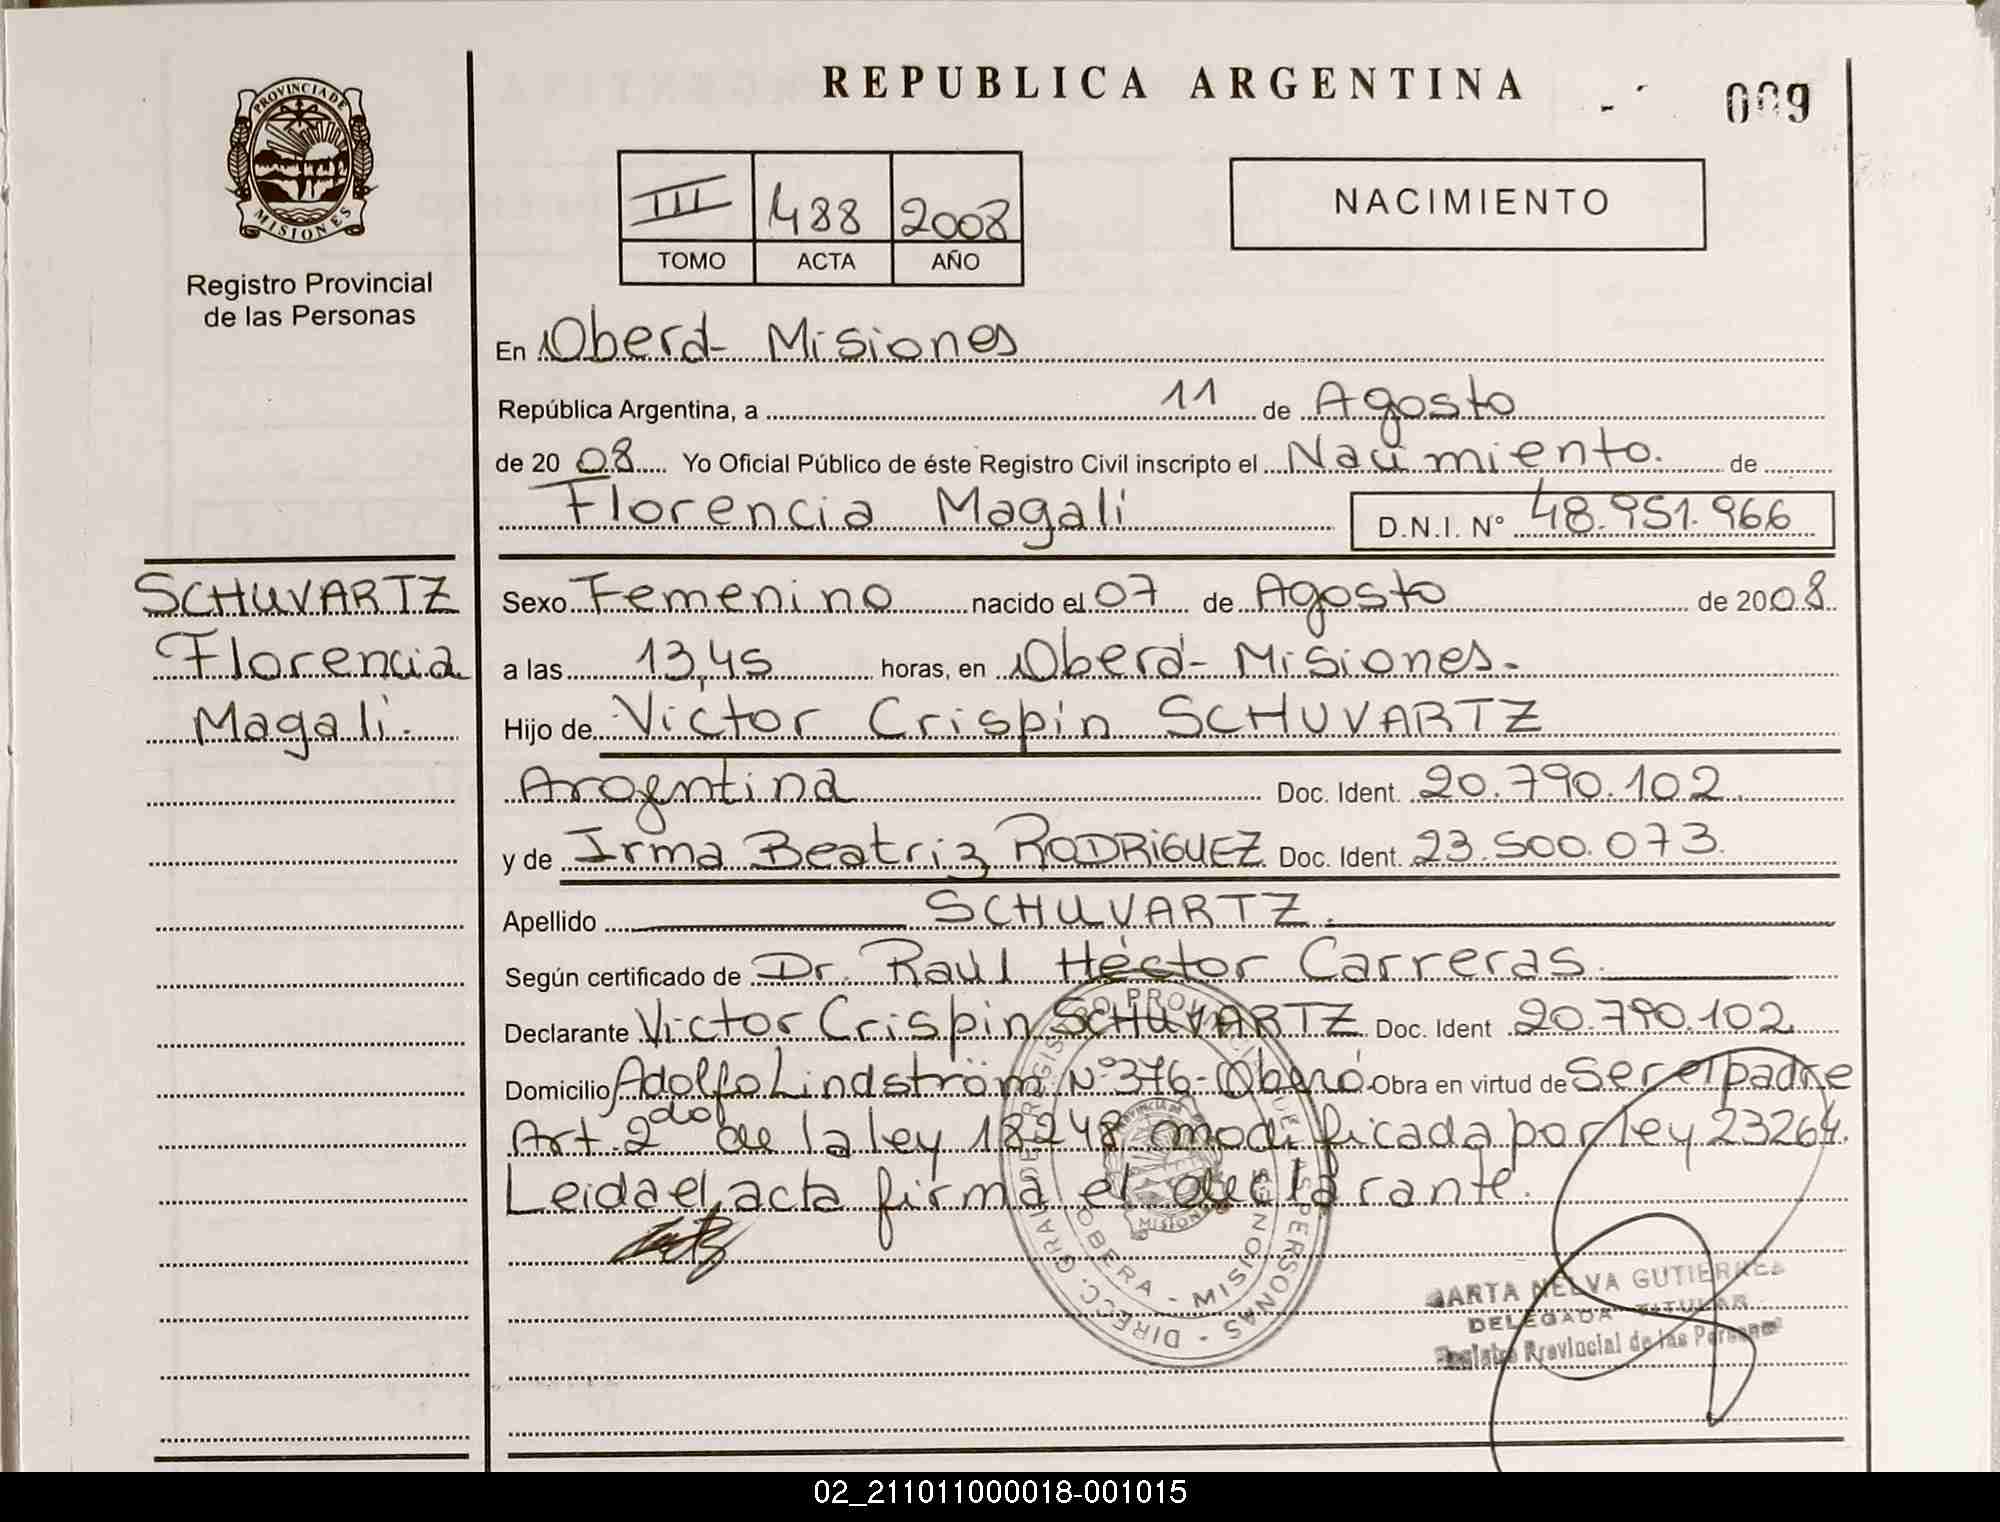 REPUBLICA ARGENTINA
009
PROVINCIA DE
MISIONES
Registro Provincial
de las Personas
III 488 2008
TOMO ACTA AÑO
NACIMIENTO
En Oberá - Misiones
República Argentina, a 11 de Agosto
de 20 08 Yo Oficial Público de éste Registro Civil inscripto el Nacimiento. de
Florencia Magali D.N.I. N° 48.951.966
SCHUVARTZ
Florencia
Magali.
Sexo Femenino nacido el 07 de Agosto de 2008
a las 13,45 horas, en Oberá - Misiones.-
Hijo de Victor Crispín SCHUVARTZ
Argentina Doc. Ident. 20.790.102.
y de Irma Beatriz RODRiGUEZ Doc. Ident. 23.500.073.
Apellido SCHUVARTZ.
Según certificado de Dr. Raúl Héctor Carreras.
Declarante Victor Crispín SCHUVARTZ Doc. Ident 20.790.102
Domicilio Adolfo Lindström N° 376 - Oberá Obra en virtud de Ser el padre
Art. 2do de la ley 18248 modificada por ley 23264.
Leida el acta firma el declarante.
DIRECC. GRAL. DE REGISTRO PROVINCIAL DE LAS PERSONAS -
OBERA - MISIONES
PROVINCIA DE
MISIONES
MARTA NELVA GUTIERREZ
DELEGADA TITULAR
Registro Provincial de las Personas
02_211011000018-001015